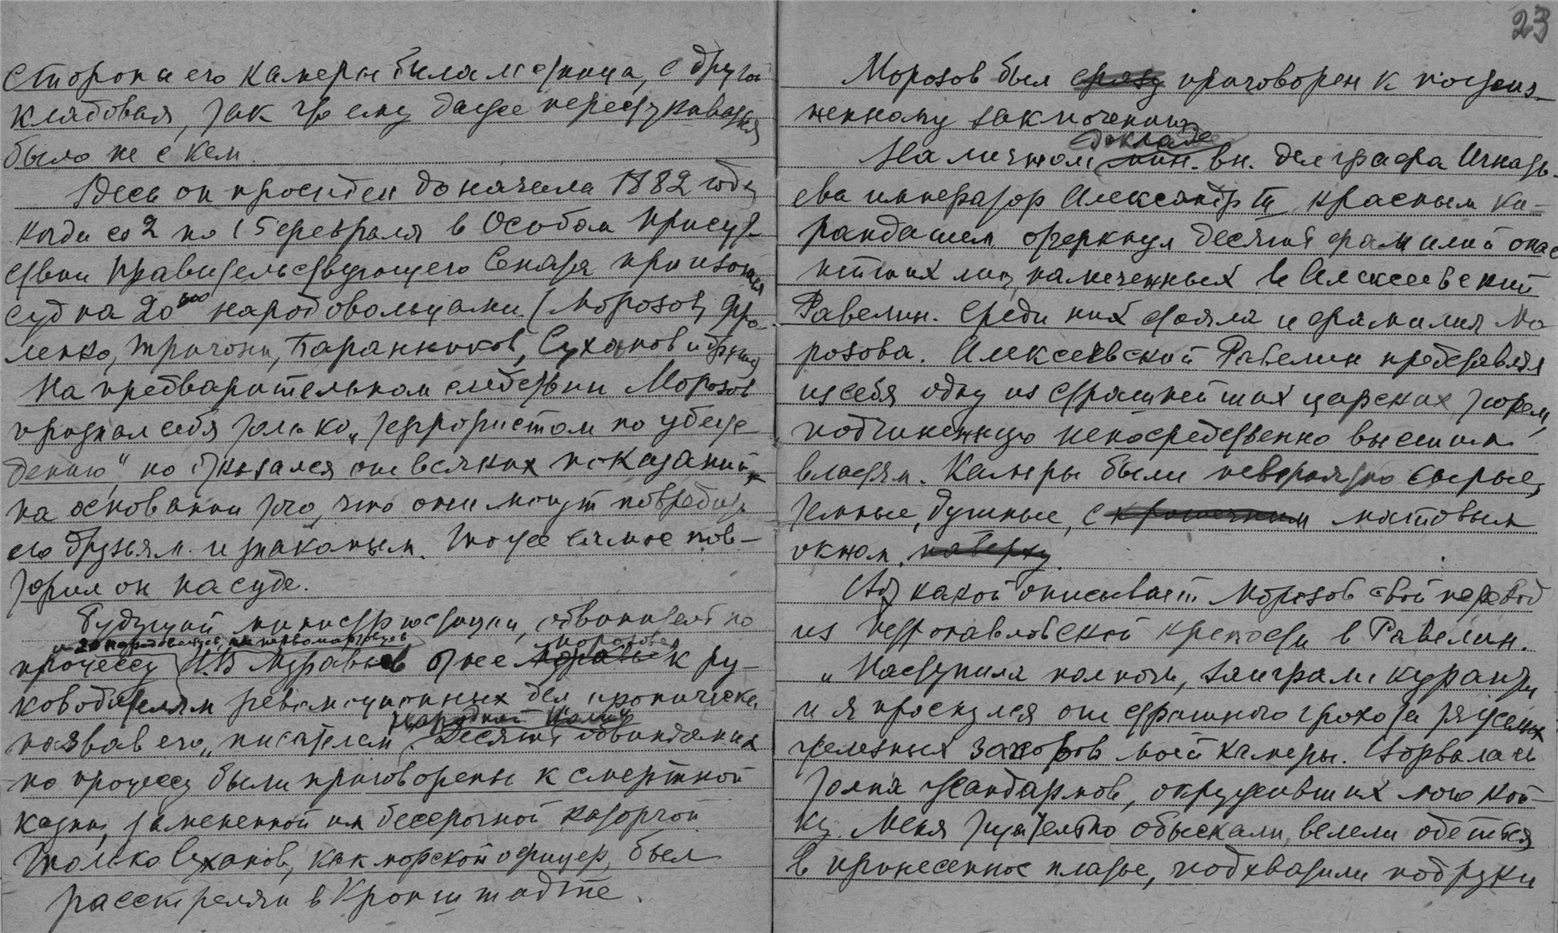 стороны его камеры была лестница, с другой
кладовая, так что ему даже перестукиваться
было не с кем.
Здесь он просидел до начала 1882 года
когда со 2 по 15 февраля в Особом присут-
ствии Правительствующего Сената произошел
суд на 20ью народовольцами (Морозов, Фро-
ленко, Тригони, Баранников, Суханов и другие
На предварительном следствии Морозов
признал себя только „террористом по убеж-
дению“, но отказался от всяких показаний
на основании того, что они могут повредить
его друзьям и знакомым. То же самое пов-
торил он на суде.
Будущий министр юстиции, обвинитель по
и 20 народовольцев, первомартовцев
процессу Н.В Муравьев отнес Морозова к ру-
ководителям революционных дел иронически
Народной Воли
назвав его „писателем“. Десять обвиняемых
по процессу были приговорены к смертной
казни, замененной им бессрочной каторгой
Только Суханов, как морской офицер, был
расстрелян в Кронштадте.
23
Морозов был сразу приговорен к пожиз-
ненному заключению
докладе
На личном мин. вн. дел графа Игнать-
ева император Александр III красным ка-
рандашем отчеркнул десять фамилий опас-
нейших лиц, намеченных в Алексеевский
Равелин. Среди них стояла и фамилия Мо-
розова. Алексеевский Равелин представлял
из себя одну из страшнейших царских тюрем,
подчиненную непосредственно высшим
властям. Камеры были невероятно сырые,
темные, душные, с крошечным матовым
окном наверху.
Вот какой описывает Морозов свой перевод
из Петропавловской крепости в Равелин.
„Наступила полночь, заиграли куранты
и я проснулся от страшного грохота тяжелых
железных запоров моей камеры. Ворвалась
толпа жандармов, окруживших мою кой-
ку. Меня тщательно обыскали, велели одеться
в принесенное платье, подхватили под руки